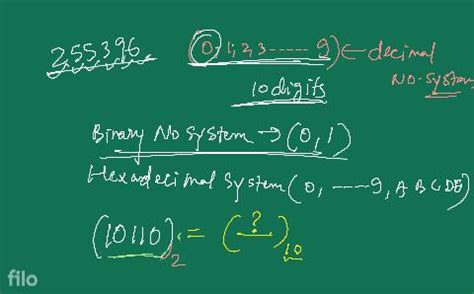 2,55,396 (0, 1, 2, 3 ----- 9) ← decimal
NO-System
10 digits
Binary No System → (0, 1)
Hexadecimal System (0, ----9, A B C D E)
(10110)₂ = (?)₁₀
filo